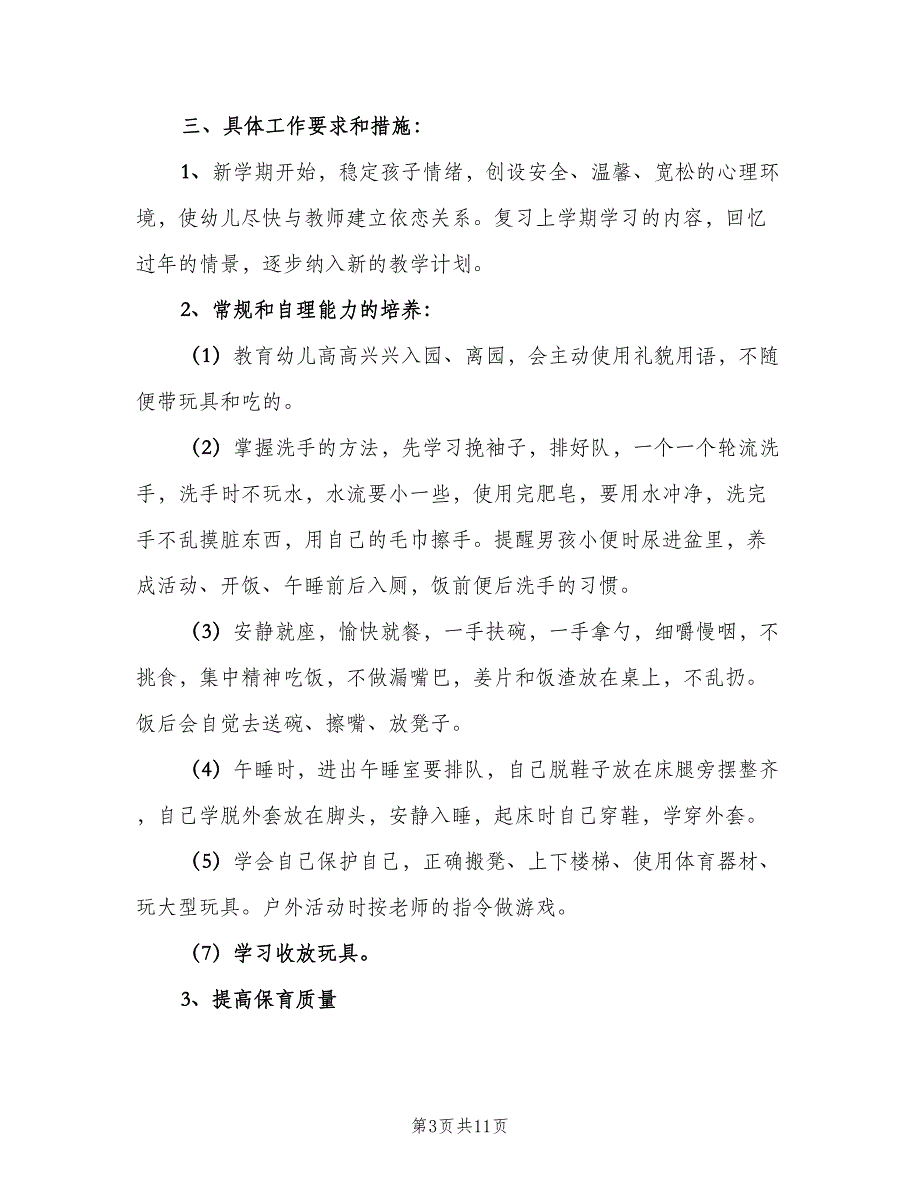 三、具体工作要求和措施：
1、新学期开始，稳定孩子情绪，创设安全、温馨、宽松的心理环
境，使幼儿尽快与教师建立依恋关系。复习上学期学习的内容，回忆
过年的情景，逐步纳入新的教学计划。
2、常规和自理能力的培养：
（1）教育幼儿高高兴兴入园、离园，会主动使用礼貌用语，不随
便带玩具和吃的。
（2）掌握洗手的方法，先学习挽袖子，排好队，一个一个轮流洗
手，洗手时不玩水，水流要小一些，使用完肥皂，要用水冲净，洗完
手不乱摸脏东西，用自己的毛巾擦手。提醒男孩小便时尿进盆里，养
成活动、开饭、午睡前后入厕，饭前便后洗手的习惯。
（3）安静就座，愉快就餐，一手扶碗，一手拿勺，细嚼慢咽，不
挑食，集中精神吃饭，不做漏嘴巴，姜片和饭渣放在桌上，不乱扔。
饭后会自觉去送碗、擦嘴、放凳子。
（4）午睡时，进出午睡室要排队，自己脱鞋子放在床腿旁摆整齐
，自己学脱外套放在脚头，安静入睡，起床时自己穿鞋，学穿外套。
（5）学会自己保护自己，正确搬凳、上下楼梯、使用体育器材、
玩大型玩具。户外活动时按老师的指令做游戏。
（7）学习收放玩具。
3、提高保育质量
第3页共11页